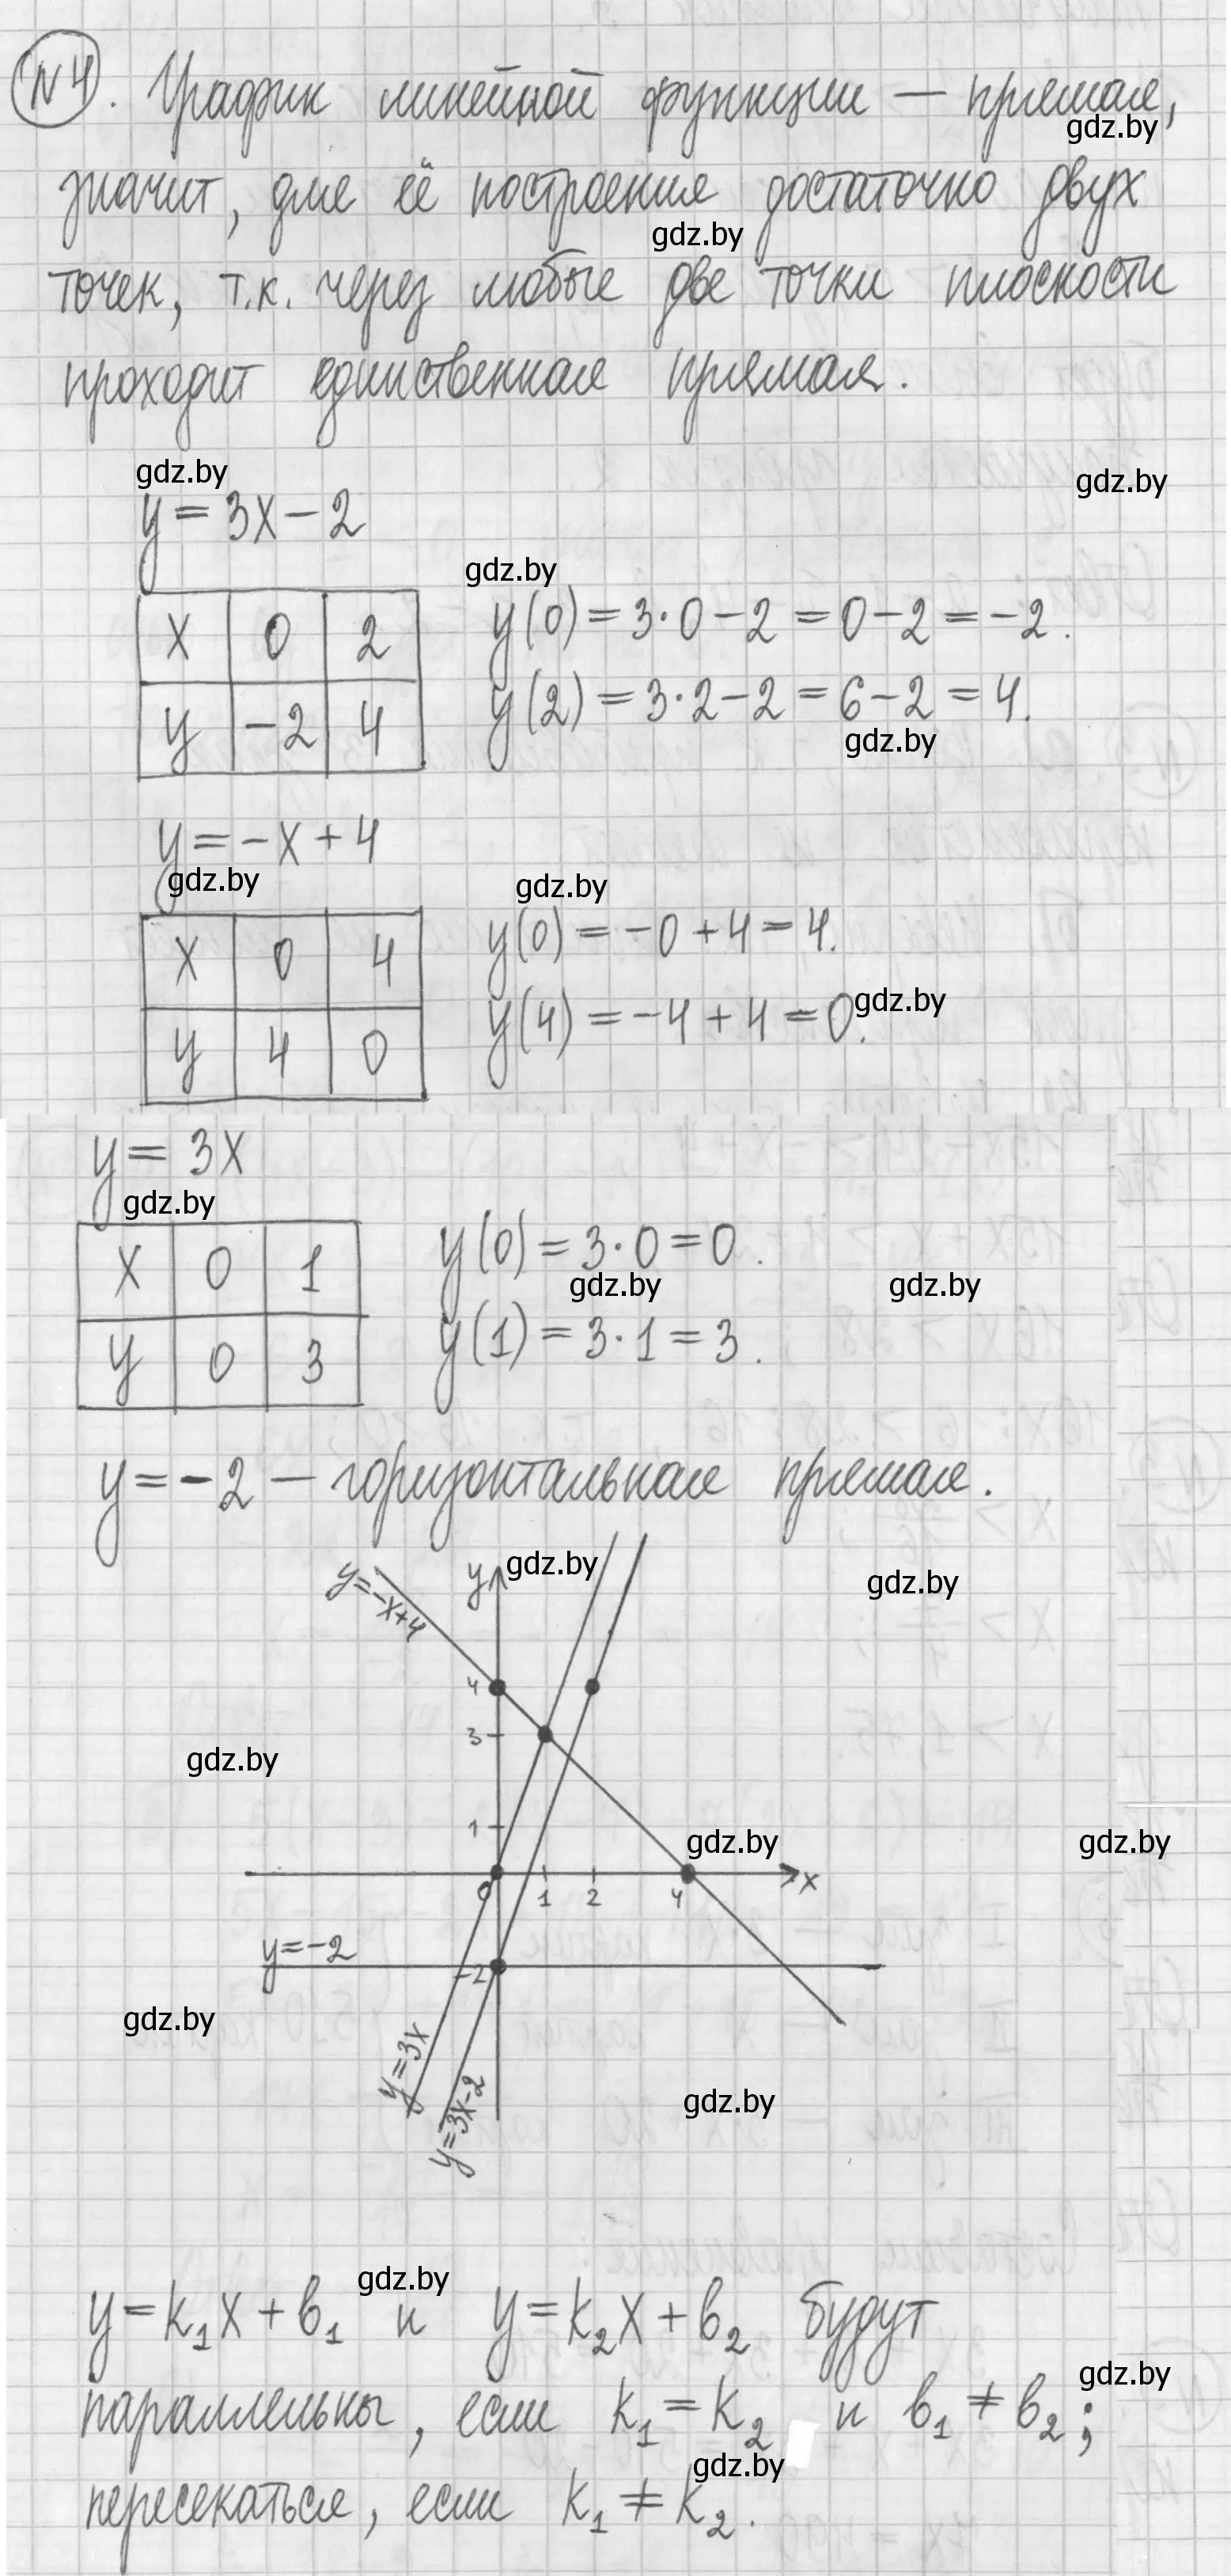 №4. График линейной функции — прямая,
gdz.by
значит, для её построения достаточно двух
gdz.by
точек, т.к. через любые две точки плоскости
проходит единственная прямая.
gdz.by
gdz.by
y = 3x − 2
gdz.by
x 0 2
y −2 4
y(0) = 3·0 − 2 = 0 − 2 = −2.
y(2) = 3·2 − 2 = 6 − 2 = 4.
gdz.by
y = −x + 4
gdz.by
gdz.by
x 0 4
y 4 0
y(0) = −0 + 4 = 4.
y(4) = −4 + 4 = 0.
gdz.by
y = 3x
gdz.by
x 0 1
y 0 3
y(0) = 3·0 = 0.
gdz.by
gdz.by
y(1) = 3·1 = 3.
y = −2 — горизонтальная прямая.
gdz.by
gdz.by
y=−x+4
y
4
3
gdz.by
1
gdz.by
gdz.by
0 1 2 4 x
y=−2
−2
gdz.by
y=3x
y=3x−2
gdz.by
gdz.by
y = k₁x + b₁ и y = k₂x + b₂ будут
gdz.by
параллельны, если k₁ = k₂ и b₁ ≠ b₂;
gdz.by
пересекаться, если k₁ ≠ k₂.